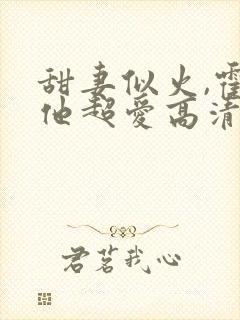 甜妻似火,霍
他超爱高清
君茗我心